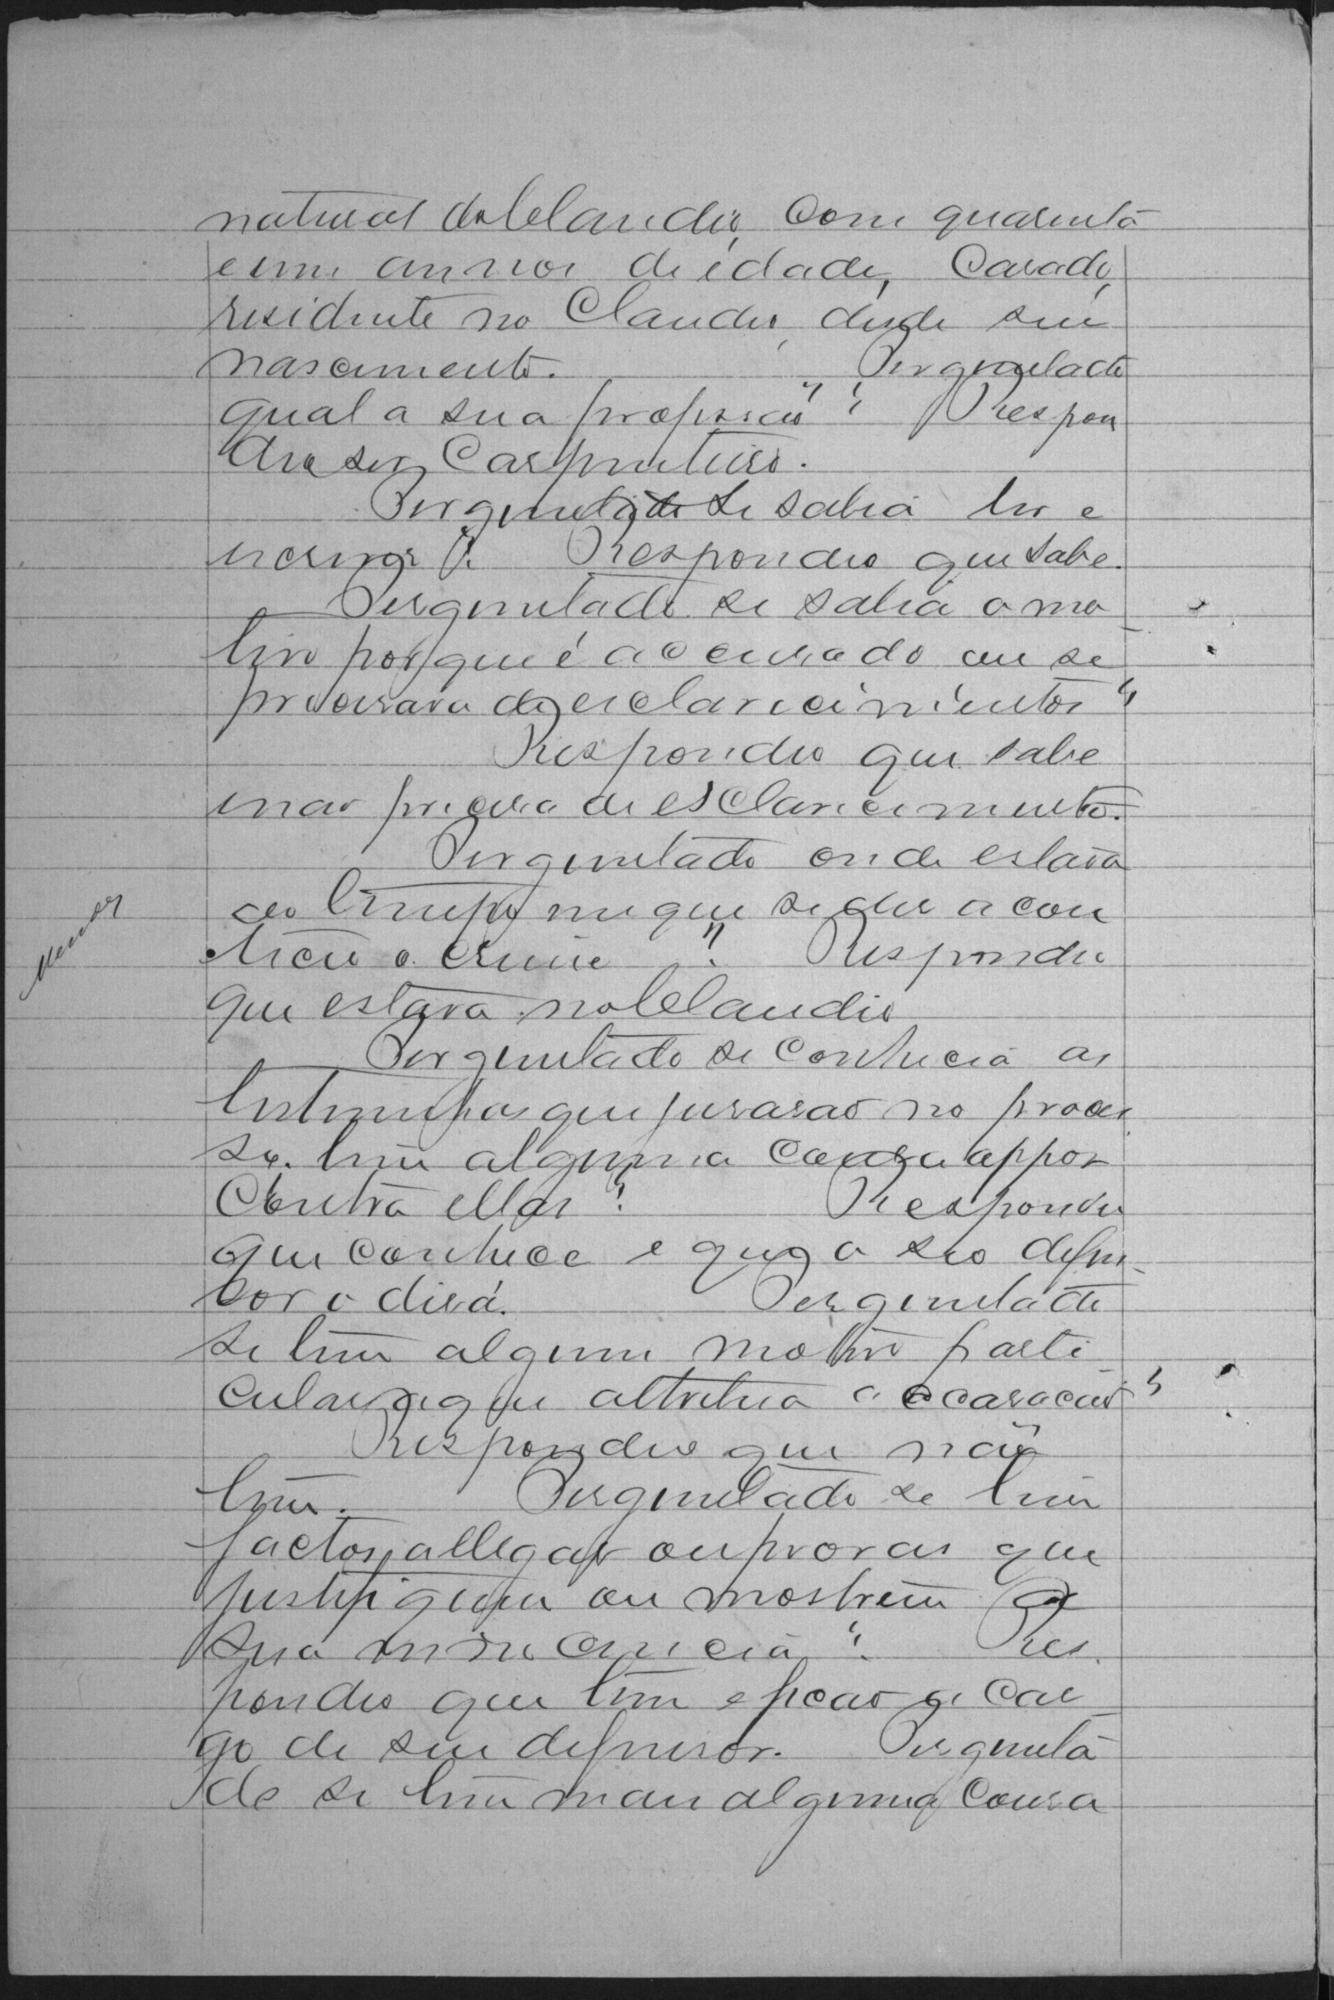 natural do Claudio, com quarenta
e um annos de idade, Casado,
residente no Claudio, desde seu
nascimento. Perguntado
qual a sua profissão? Respon
deo ser Carpinteiro.
Perguntado se sabia ler e
escrever? Respondeo que sabe.
Perguntado se sabia o mo
tivo porque é accusado ou se
precisava de esclarecimentos?
Respondeo que sabe
e não precisa de esclarecimento.
Perguntado onde estava
ao tempo em que se deu a con
tição o crime? Respondeu
que estava no Claudio
Perguntado se conhecia as
testemunhas que jurarão no proces
so. tem alguma cousa appor
Contra ellas? Respondeu
que conhece e que o seo defen-
sor o dirá. Perguntado
se tem algum motivo parti
cular a que attribua a accusação?
Respondeo que não
tem. Perguntado se tem
factos, allegar ou provas que
justifiquem ou mostrem a
sua innocencia? Res
pondeo que tem e ficão a car
go de seu defensor. Pergunta
do se tem mais alguma cousa